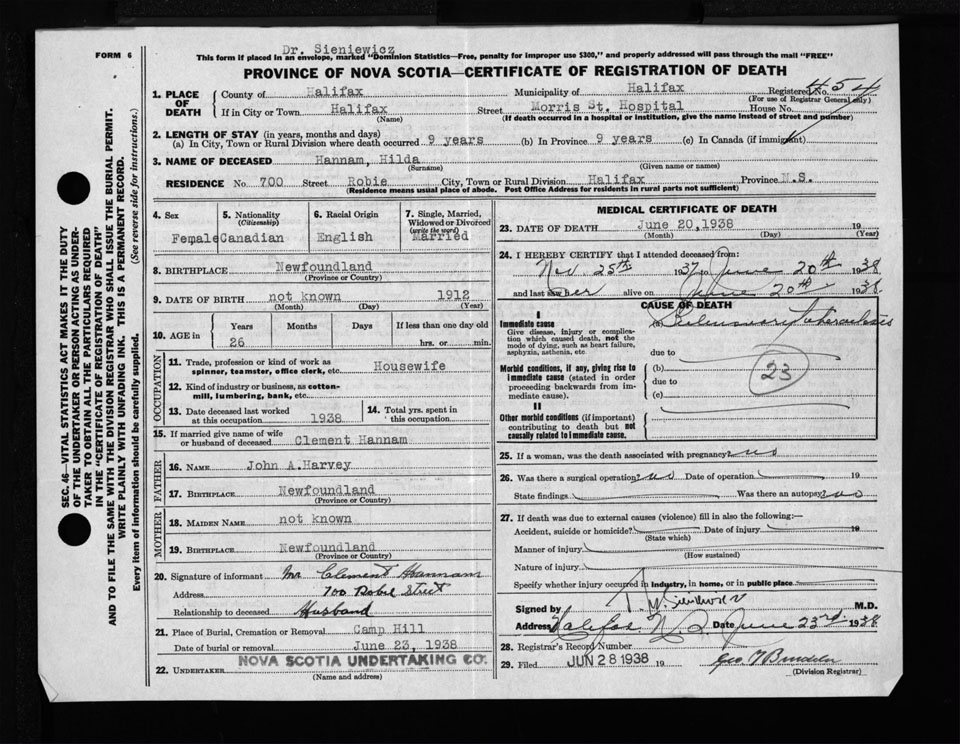 FORM 6
Dr. Sieniewicz
This form if placed in an envelope, marked "Dominion Statistics—Free, penalty for improper use $300," and properly addressed will pass through the mail "FREE"
PROVINCE OF NOVA SCOTIA—CERTIFICATE OF REGISTRATION OF DEATH
SEC. 46—VITAL STATISTICS ACT MAKES IT THE DUTY
OF THE UNDERTAKER OR PERSON ACTING AS UNDER-
TAKER TO OBTAIN ALL THE PARTICULARS REQUIRED
IN THE "CERTIFICATE OF REGISTRATION OF DEATH"
AND TO FILE THE SAME WITH THE DIVISION REGISTRAR WHO SHALL ISSUE THE BURIAL PERMIT.
WRITE PLAINLY WITH UNFADING INK. THIS IS A PERMANENT RECORD.
Every item of information should be carefully supplied. (See reverse side for instructions.)
1. PLACE OF DEATH
County of Halifax Municipality of Halifax Registered No. 454
(For use of Registrar General only)
If in City or Town Halifax Street Morris St. Hospital House No.
(Name) (If death occurred in a hospital or institution, give the name instead of street and number)
2. LENGTH OF STAY (in years, months and days)
(a) In City, Town or Rural Division where death occurred 9 years (b) In Province 9 years (c) In Canada (if immigrant)
3. NAME OF DECEASED Hannam, Hilda
(Surname) (Given name or names)
RESIDENCE No. 700 Street Robie City, Town or Rural Division Halifax Province N.S.
(Residence means usual place of abode. Post Office Address for residents in rural parts not sufficient)
4. Sex
Female
5. Nationality
(Citizenship)
Canadian
6. Racial Origin
English
7. Single, Married,
Widowed or Divorced
(write the word)
Married
8. BIRTHPLACE Newfoundland
(Province or Country)
9. DATE OF BIRTH not known 1912
(Month) (Day) (Year)
10. AGE in
Years Months Days If less than one day old
26 hrs. or min.
OCCUPATION
11. Trade, profession or kind of work as
spinner, teamster, office clerk, etc. Housewife
12. Kind of industry or business, as cotton-
mill, lumbering, bank, etc.
13. Date deceased last worked
at this occupation 1938
14. Total yrs. spent in
this occupation
15. If married give name of wife
or husband of deceased Clement Hannam
FATHER
16. NAME John A.Harvey
17. BIRTHPLACE Newfoundland
(Province or Country)
MOTHER
18. MAIDEN NAME not known
19. BIRTHPLACE Newfoundland
(Province or Country)
20. Signature of informant Mr Clement Hannam
Address 700 Robie Street
Relationship to deceased Husband
21. Place of Burial, Cremation or Removal Camp Hill
Date of burial or removal June 23, 1938
22. UNDERTAKER NOVA SCOTIA UNDERTAKING CO.
(Name and address)
MEDICAL CERTIFICATE OF DEATH
23. DATE OF DEATH June 20,1938 19
(Month) (Day) (Year)
24. I HEREBY CERTIFY that I attended deceased from:
Nov 25th 1937 to June 20th 1938
and last saw her alive on June 20th 1938.
CAUSE OF DEATH
I
Immediate cause
Give disease, injury or complica-
tion which caused death, not the
mode of dying, such as heart failure,
asphyxia, asthenia, etc.
(a) Pulmonary Tuberculosis
due to
Morbid conditions, if any, giving rise to
immediate cause (stated in order
proceeding backwards from im-
mediate cause).
(b)
due to
(c)
23
II
Other morbid conditions (if important)
contributing to death but not
causally related to immediate cause.
25. If a woman, was the death associated with pregnancy? no
26. Was there a surgical operation? no Date of operation 19
State findings Was there an autopsy? no
27. If death was due to external causes (violence) fill in also the following:—
Accident, suicide or homicide? Date of injury 19
(State which)
Manner of injury
(How sustained)
Nature of injury
Specify whether injury occurred in industry, in home, or in public place
Signed by M.D.
Address Halifax N.S. Date June 23rd 1938
28. Registrar's Record Number
29. Filed JUN 28 1938 19
(Division Registrar)